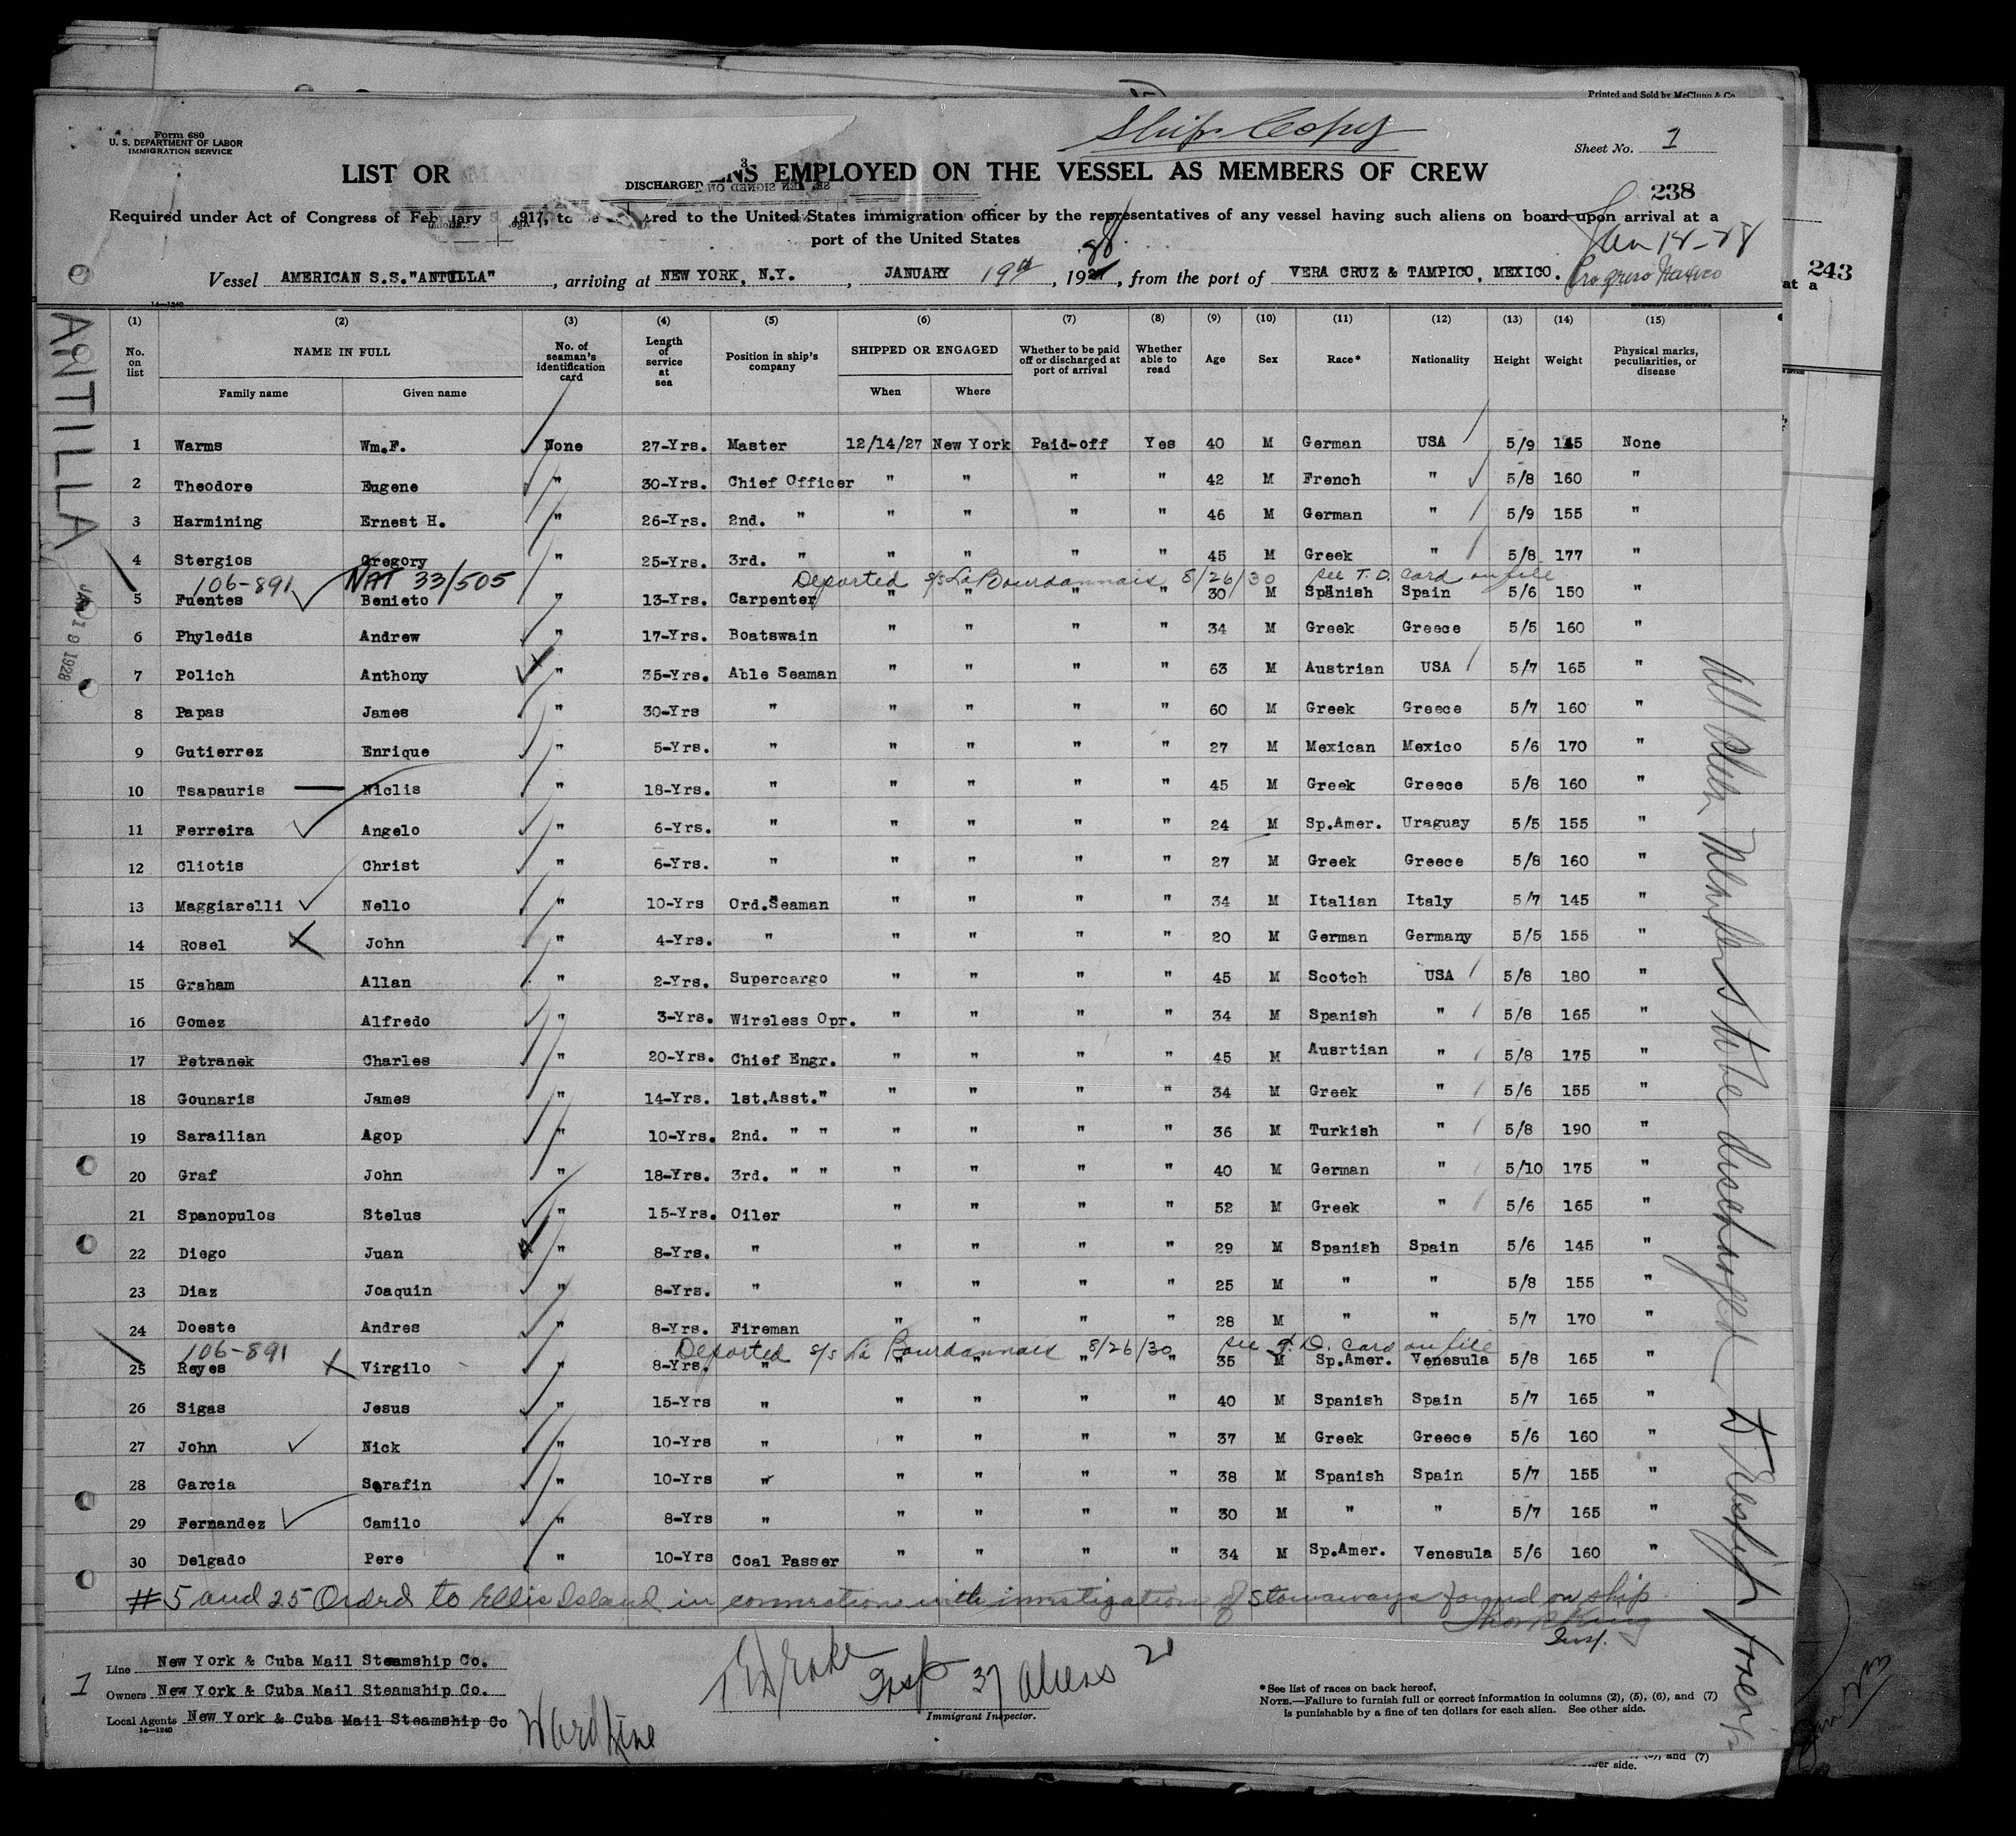 Printed and Sold by McClunn & Co
Ship Copy
Form 680
U. S. DEPARTMENT OF LABOR
IMMIGRATION SERVICE
Sheet No. 1
LIST OR
DISCHARGED
ENS EMPLOYED ON THE VESSEL AS MEMBERS OF CREW
238
Required under Act of Congress of February 1917, to be ared to the United States immigration officer by the representatives of any vessel having such aliens on board upon arrival at a
port of the United States
Jan 14-28
Progreso Mexico
Vessel AMERICAN S.S."ANTILLA", arriving at NEW YORK, N.Y., JANUARY 19th, 1928, from the port of VERA CRUZ & TAMPICO, MEXICO.
243
at a
14-1240
ANTILLA
JAN 19 1928
(1) (2) (3) (4) (5) (6) (7) (8) (9) (10) (11) (12) (13) (14) (15)
No. on list NAME IN FULL No. of seaman's identification card Length of service at sea Position in ship's company SHIPPED OR ENGAGED Whether to be paid off or discharged at port of arrival Whether able to read Age Sex Race* Nationality Height Weight Physical marks, peculiarities, or disease
Family name Given name When Where
1 Warms Wm.F. None 27-Yrs. Master 12/14/27 New York Paid-off Yes 40 M German USA 5/9 145 None
2 Theodore Eugene " 30-Yrs. Chief Officer " " " " 42 M French " 5/8 160 "
3 Harmining Ernest H. " 26-Yrs. 2nd. " " " " " 46 M German " 5/9 155 "
4 Stergios Gregory " 25-Yrs. 3rd. " " " " " 45 M Greek " 5/8 177 "
106-891 NAT 33/505 Deported s/s La Bourdannais 8/26/30 see T.D. Card on file
5 Fuentes Benieto " 13-Yrs. Carpenter " " " " 30 M Spanish Spain 5/6 150 "
6 Phyledis Andrew " 17-Yrs. Boatswain " " " " 34 M Greek Greece 5/5 160 "
7 Polich Anthony " 35-Yrs. Able Seaman " " " " 63 M Austrian USA 5/7 165 "
8 Papas James " 30-Yrs " " " " " 60 M Greek Greece 5/7 160 "
9 Gutierrez Enrique " 5-Yrs. " " " " " 27 M Mexican Mexico 5/6 170 "
10 Tsapauris Niclis " 18-Yrs. " " " " " 45 M Greek Greece 5/8 160 "
11 Ferreira Angelo " 6-Yrs. " " " " " 24 M Sp.Amer. Uraguay 5/5 155 "
12 Cliotis Christ " 6-Yrs. " " " " " 27 M Greek Greece 5/8 160 "
13 Maggiarelli Nello " 10-Yrs Ord.Seaman " " " " 34 M Italian Italy 5/7 145 "
14 Rosel John " 4-Yrs. " " " " " 20 M German Germany 5/5 155 "
15 Graham Allan " 2-Yrs. Supercargo " " " " 45 M Scotch USA 5/8 180 "
16 Gomez Alfredo " 3-Yrs. Wireless Opr. " " " " 34 M Spanish " 5/8 165 "
17 Petranek Charles " 20-Yrs. Chief Engr. " " " " 45 M Ausrtian " 5/8 175 "
18 Gounaris James " 14-Yrs. 1st.Asst." " " " " 34 M Greek " 5/6 155 "
19 Sarailian Agop " 10-Yrs. 2nd. " " " " " " 36 M Turkish " 5/8 190 "
20 Graf John " 18-Yrs. 3rd. " " " " " " 40 M German " 5/10 175 "
21 Spanopulos Stelus " 15-Yrs. Oiler " " " " 52 M Greek " 5/6 165 "
22 Diego Juan " 8-Yrs. " " " " " 29 M Spanish Spain 5/6 145 "
23 Diaz Joaquin " 8-Yrs. " " " " " 25 M " " 5/8 155 "
24 Doeste Andres " 8-Yrs. Fireman " " " " 28 M " " 5/7 170 "
106-891 Deported s/s La Bourdannais 8/26/30 see T.D. Card on file
25 Reyes Virgilo " 8-Yrs. " " " " " 35 M Sp.Amer. Venesula 5/8 165 "
26 Sigas Jesus " 15-Yrs " " " " " 40 M Spanish Spain 5/7 165 "
27 John Nick " 10-Yrs " " " " " 37 M Greek Greece 5/6 160 "
28 Garcia Serafin " 10-Yrs " " " " " 38 M Spanish Spain 5/7 155 "
29 Fernandez Camilo " 8-Yrs " " " " " 30 M " " 5/7 165 "
30 Delgado Pere " 10-Yrs Coal Passer " " " " 34 M Sp.Amer. Venesula 5/6 160 "
All Alien Members to be discharged to Reship Foreign
#5 and 25 Ordrd to Ellis Island in connection with investigation of Stowaways found on ship
Thos R King
Insp.
1
Line New York & Cuba Mail Steamship Co.
Owners New York & Cuba Mail Steamship Co.
Local Agents New York & Cuba Mail Steamship Co
14-1240
Ward Line
Drake Insp 37 Aliens 28
Immigrant Inspector.
*See list of races on back hereof.
NOTE.—Failure to furnish full or correct information in columns (2), (5), (6), and (7)
is punishable by a fine of ten dollars for each alien. See other side.
and (7)
er side.